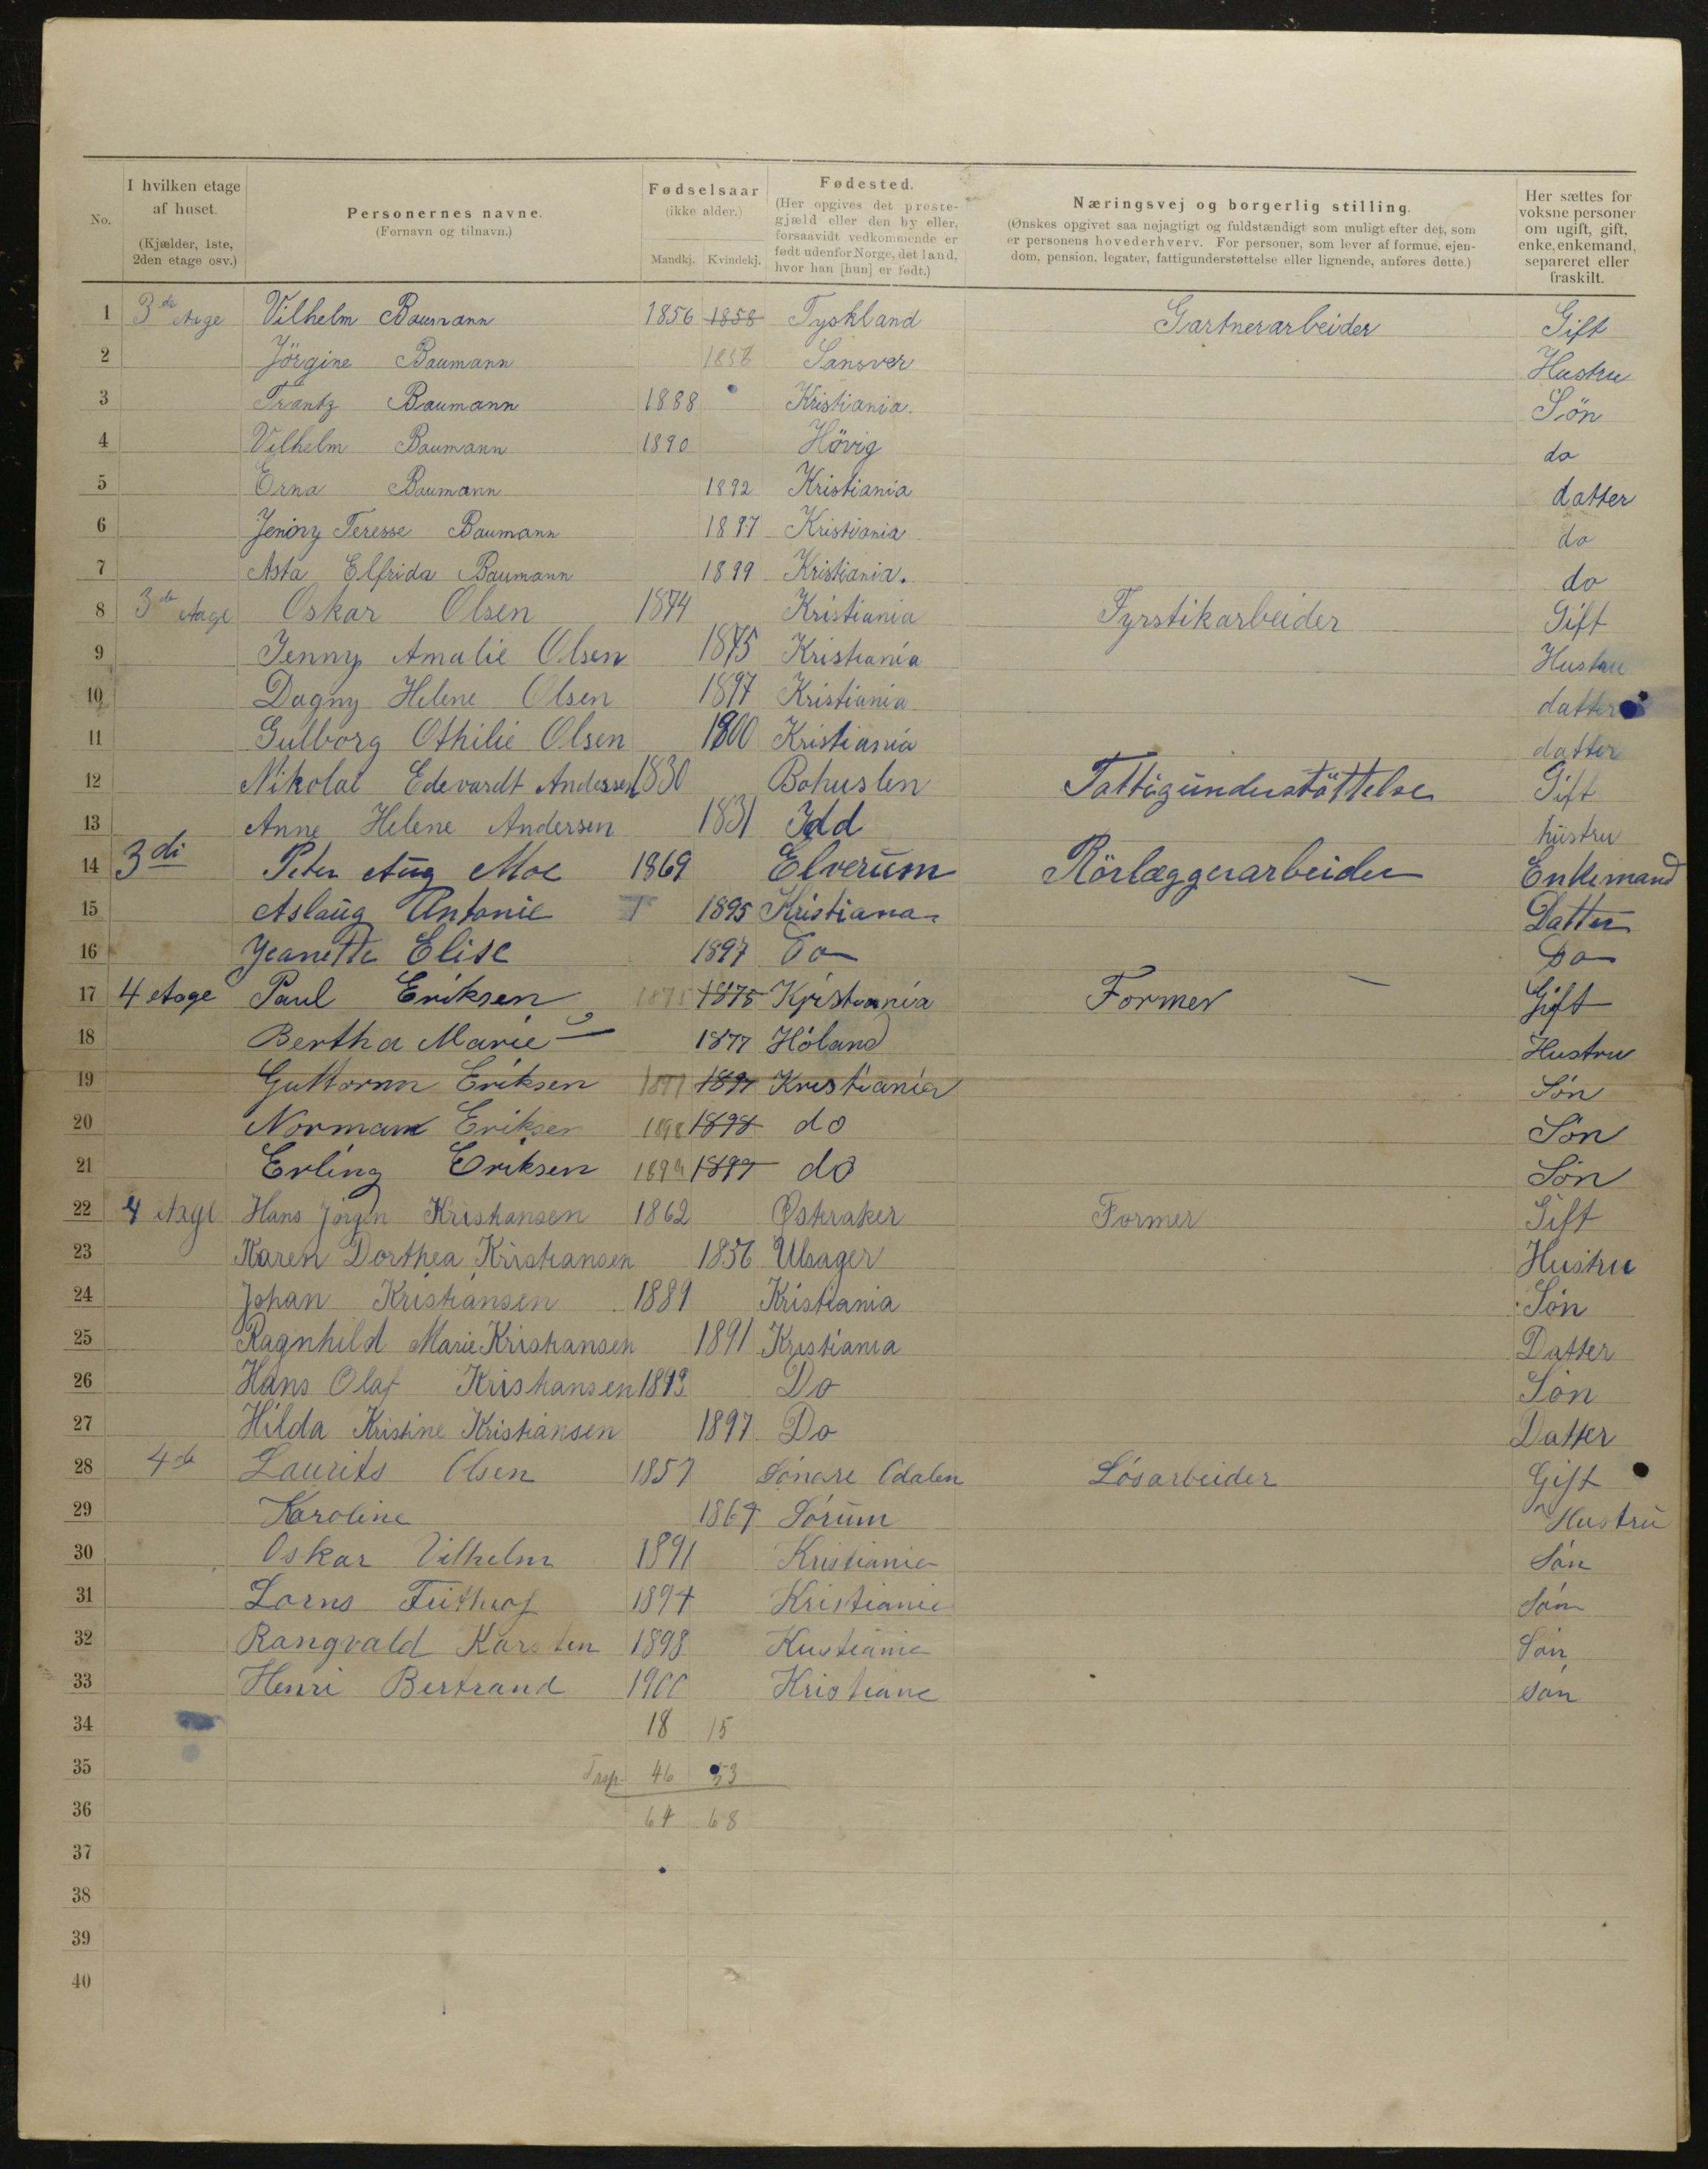 No.
I hvilken etage af huset. (Kjælder, 1ste, 2den etage osv.)
Personernes navne. (Fornavn og tilnavn.)
Fødselsaar (ikke alder.) Mandkj. Kvindekj.
Fødested. (Her opgives det prestegjæld eller den by eller, forsaavidt vedkommende er født udenfor Norge, det land, hvor han [hun] er født.)
Næringsvej og borgerlig stilling. (Ønskes opgivet saa nøjagtigt og fuldstændigt som muligt efter det, som er personens hovederhverv. For personer, som lever af formue, ejendom, pension, legater, fattigunderstøttelse eller lignende, anføres dette.)
Her sættes for voksne personer om ugift, gift, enke, enkemand, separeret eller fraskilt.
1 3de etage Vilhelm Baumann 1856 1858 Tyskland Gartnerarbeider Gift
2 Jörgine Baumann 1856 Sansver Hustru
3 Frantz Baumann 1888 Kristiania. Sön
4 Vilhelm Baumann 1890 Hövig do
5 Erna Baumann 1892 Kristiania datter
6 Jenny Teresse Baumann 1897 Kristiania do
7 Asta Elfrida Baumann 1899 Kristiania. do
8 3de etage Oskar Olsen 1874 Kristiania Fyrstikarbeider Gift
9 Jenny Amalie Olsen 1875 Kristiania Hustru
10 Dagny Helene Olsen 1897 Kristiania datter
11 Gulborg Othilie Olsen 1900 Kristiania datter
12 Nikolai Edevardt Andersen 1830 Bohuslen Fattigunderstöttelse Gift
13 Anne Helene Andersen 1831 Idd hustru
14 3di Peter Aug Moe 1869 Elverum Rörlæggerarbeider Enkemand
15 Aslaug Antonie 1895 Kristiana Datter
16 Jeanette Elise 1897 Do Do
17 4 etage Paul Eriksen 1875 1875 Kristiania Former Gift
18 Bertha Marie 1877 Höland Hustru
19 Guttorm Eriksen 1897 1897 Kristiania Sön
20 Norman Eriksen 1898 1898 do Sön
21 Erling Eriksen 1899 1899 do Sön
22 4 etage Hans Jörgen Kristiansen 1862 Østeraker Former Gift
23 Karen Dorthea Kristiansen 1856 Ulsager Hustru
24 Johan Kristiansen 1889 Kristiania Sön
25 Ragnhild Marie Kristiansen 1891 Kristiania Datter
26 Hans Olaf Kristiansen 1893 Do Sön
27 Hilda Kristine Kristiansen 1897 Do Datter
28 4de Laurits Olsen 1857 Söndre Odalen Lösarbeider Gift
29 Karoline 1864 Sörum Hustru
30 Oskar Vilhelm 1891 Kristiania Sön
31 Lorns Frithiof 1894 Kristiania Sön
32 Rangvald Karsten 1898 Kristiania Sön
33 Henri Bertrand 1900 Kristiane Sön
34 18 15
35 Trsp. 46 53
36 64 68
37
38
39
40